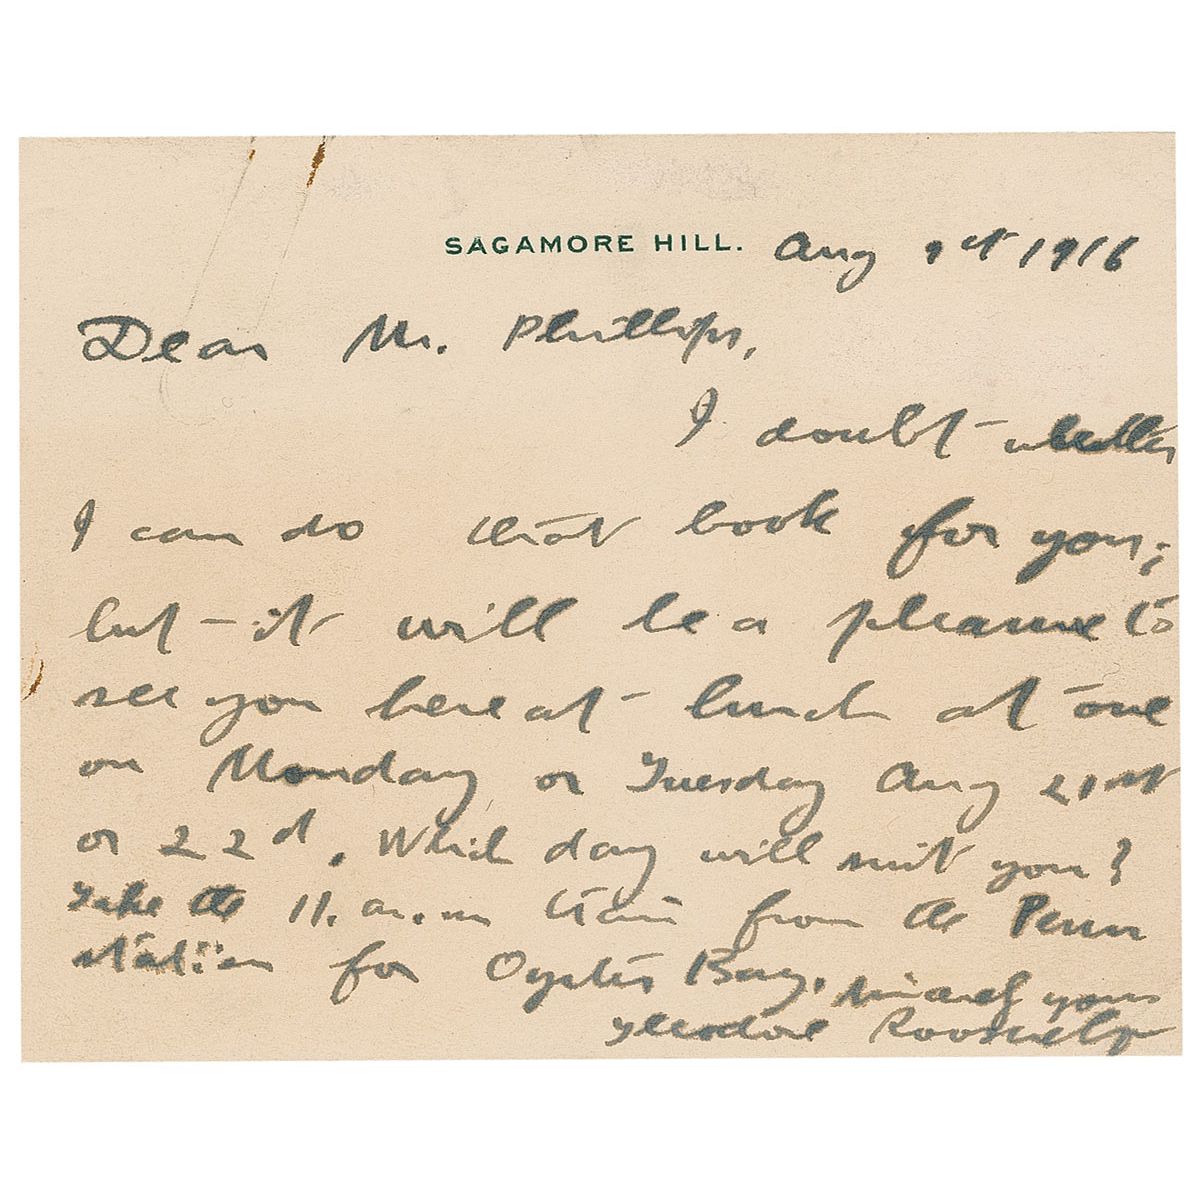 SAGAMORE HILL. Aug 1st 1916
Dear Mr. Phillips,
I doubt whether
I can do that book for you;
but it will be a pleasure to
see you here at lunch at one
on Monday or Tuesday Aug 21st
or 22d. Which day will suit you?
Take the 11. a.m train from the Penn
station for Oyster Bay. Sincerely yours
Theodore Roosevelt